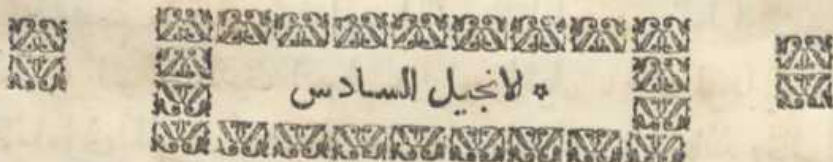 * لانجيل السادس